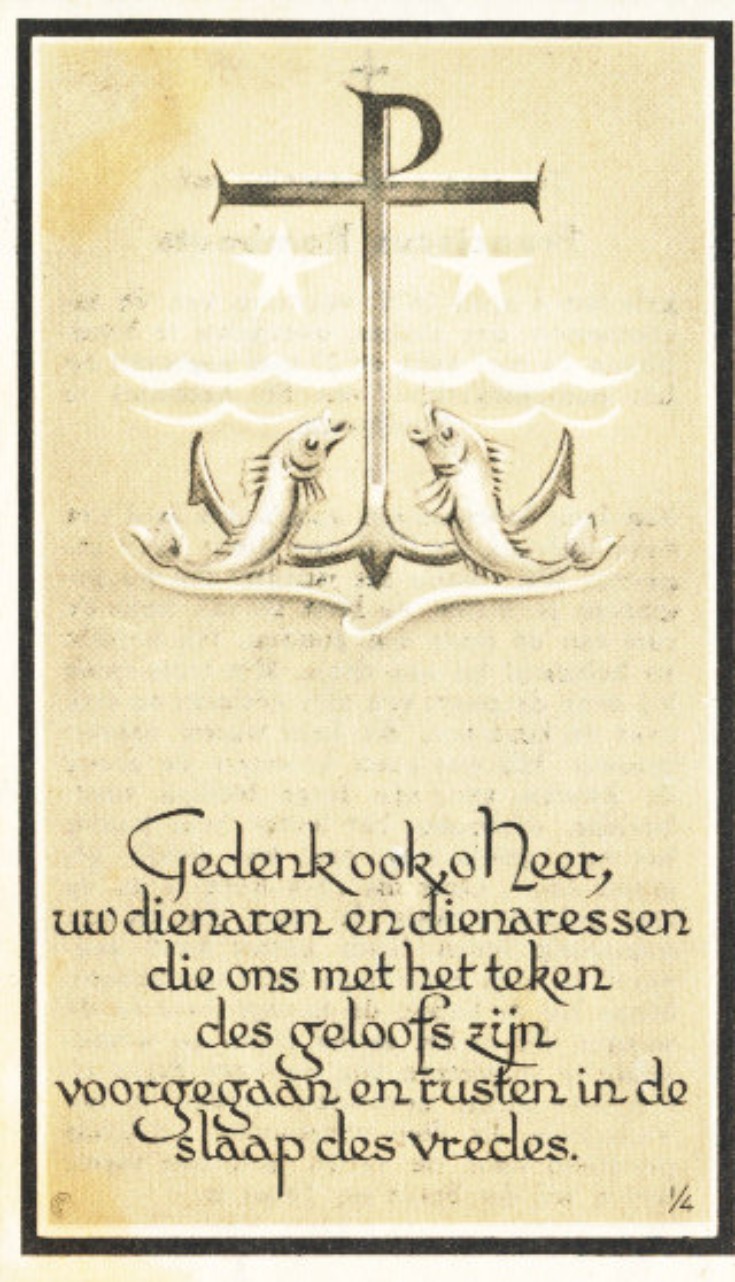 Gedenk ook, o Heer,
uw dienaren en dienaressen
die ons met het teken
des geloofs zijn
voorgegaan en rusten in de
slaap des vredes.
1/4